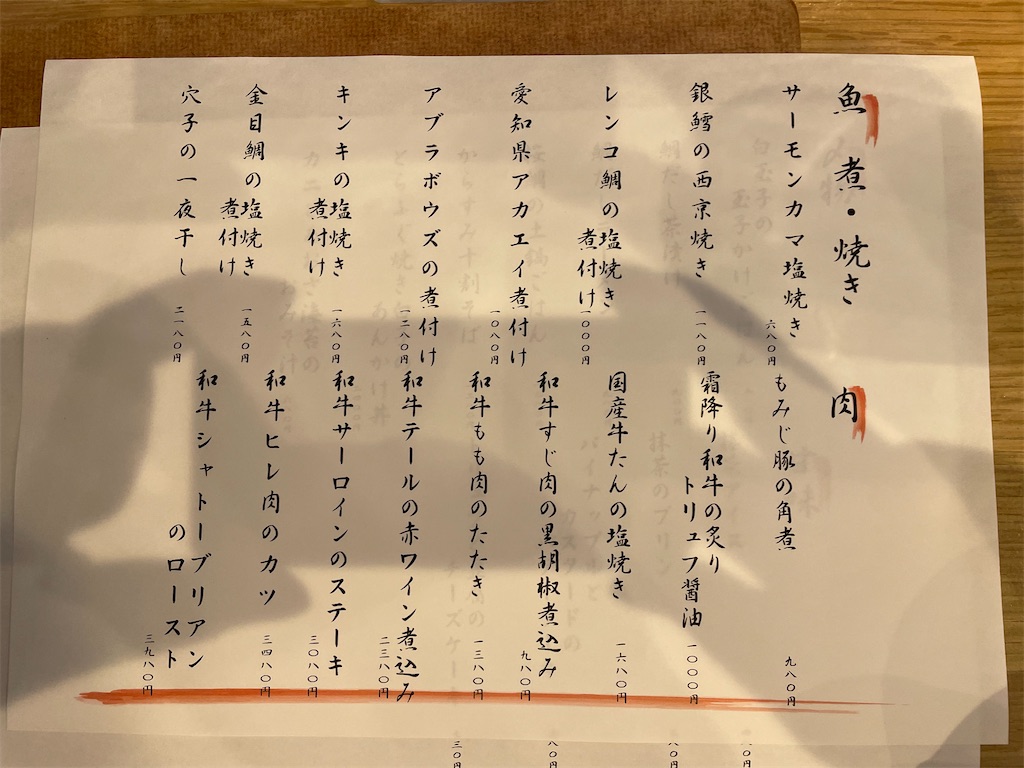 魚
煮・焼き
サーモンカマ塩焼き
六八〇円
銀鱈の西京焼き
一一八〇円
レンコ鯛の塩焼き
煮付け
一〇〇〇円
愛知県アカエイ煮付け
一〇八〇円
アブラボウズの煮付け
一二八〇円
キンキの塩焼き
煮付け
一六八〇円
金目鯛の塩焼き
煮付け
一五八〇円
穴子の一夜干し
二一八〇円
肉
もみじ豚の角煮
九八〇円
霜降り和牛の炙り
トリュフ醤油
一〇〇〇円
国産牛たんの塩焼き
一六八〇円
和牛すじ肉の黒胡椒煮込み
九八〇円
和牛もも肉のたたき
一三八〇円
和牛テールの赤ワイン煮込み
二三八〇円
和牛サーロインのステーキ
三〇八〇円
和牛ヒレ肉のカツ
三四八〇円
和牛シャトーブリアン
のロースト
三九八〇円